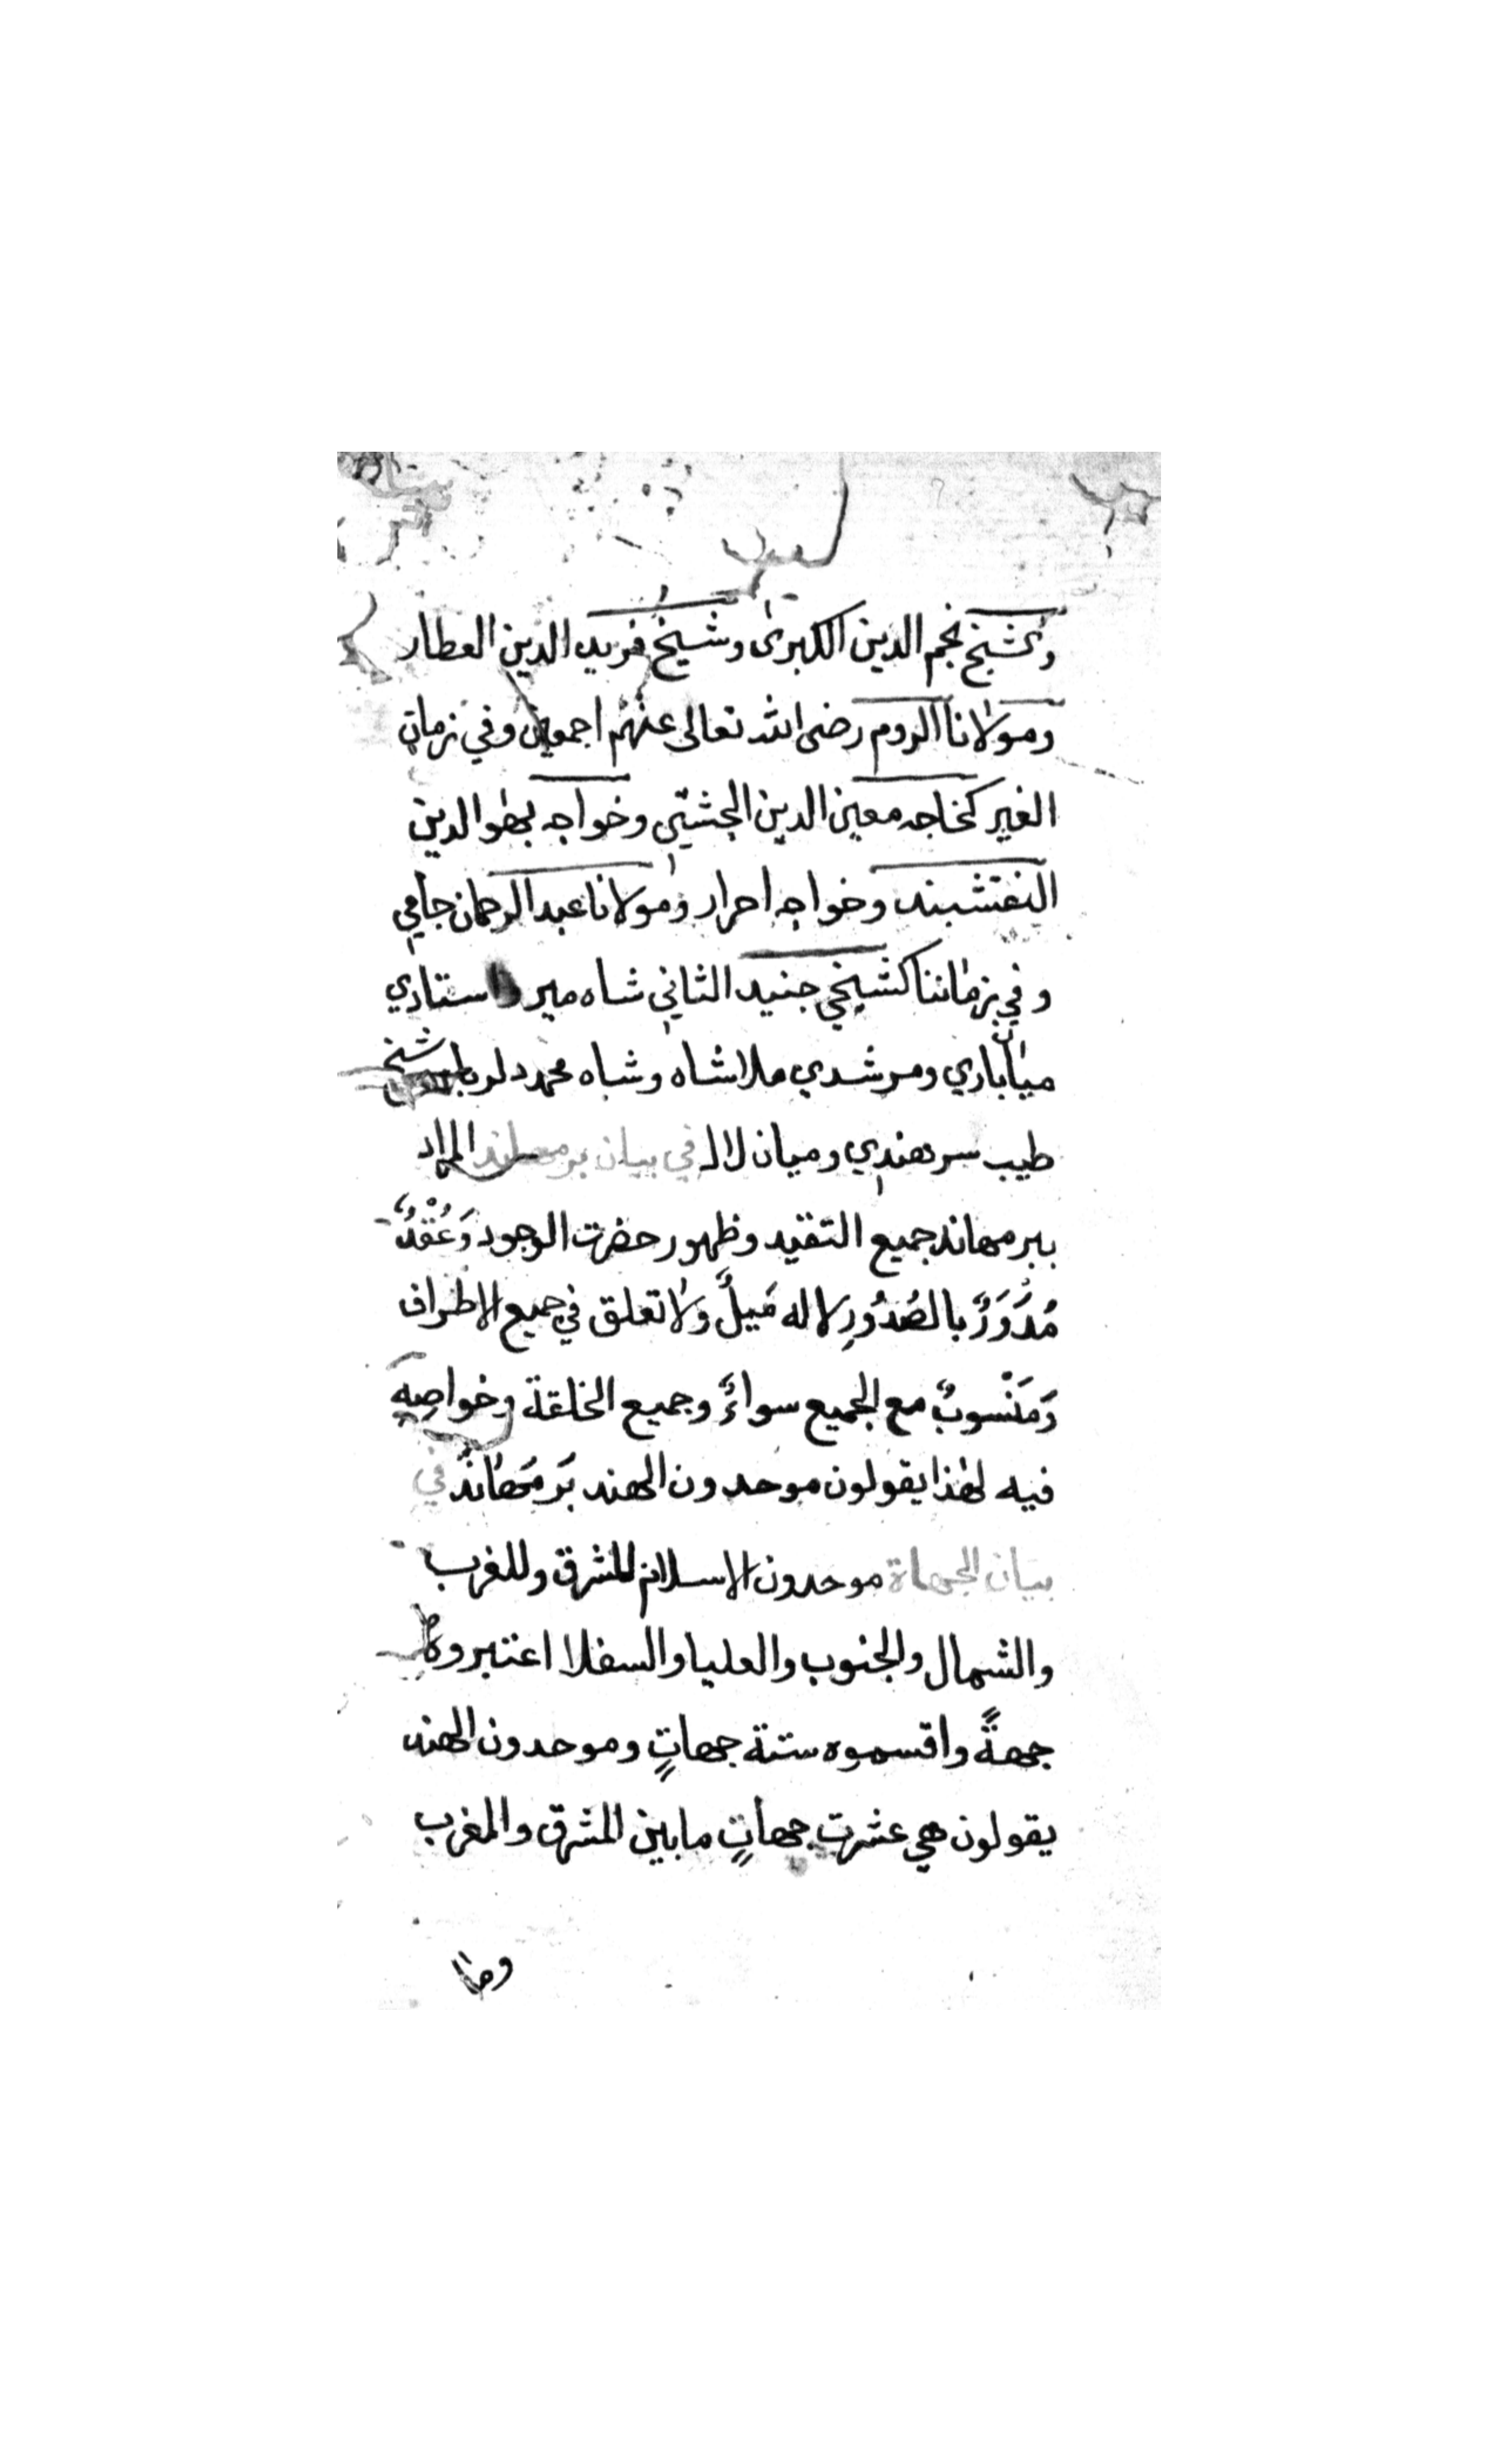 وكشيخ نجم الدين الكبرى وشيخ فريد الدين العطار
ومولانا الروم رضى الله تعالى عنهم اجمعين وفي زمان
الغير كخاجه معين الدين الچشتي وخواجه بهٰو الدين
النقشبند وخواجه احرار ومولانا عبد الرحمان جامي
وفي زماننا كشيخي جنيد الثاني شاه مير استادي
ميان باري ومرشدي ملا شاه وشاه محمد دلربا شيخ
طيب سرهندي وميان لال في بيان برمهاند المراد
ببرمهاند جميع التقيد وظهور حضرت الوجود وَعُقْدٌ
مُدَوَرٌ بالصُدُورِ لا له مَيلٌ ولا تعلق في جميع الاطراف
وَمَنْسوبٌ مع الجميع سواءٌ وجميع الخلقة وخواصِه
فيه لهٰذا يقولون موحدون الهند بَرمَهٰاندْ في
بيان الجهاة موحدون الاسلام للمشرق وللغرب
والشمال والجنوب والعليا والسفلا اعتبروه
جهةً واقسموه ستة جهاتٍ وموحدون الهند
يقولون هي عشرت جهاتٍ مابين المشرق والمغرب
وما